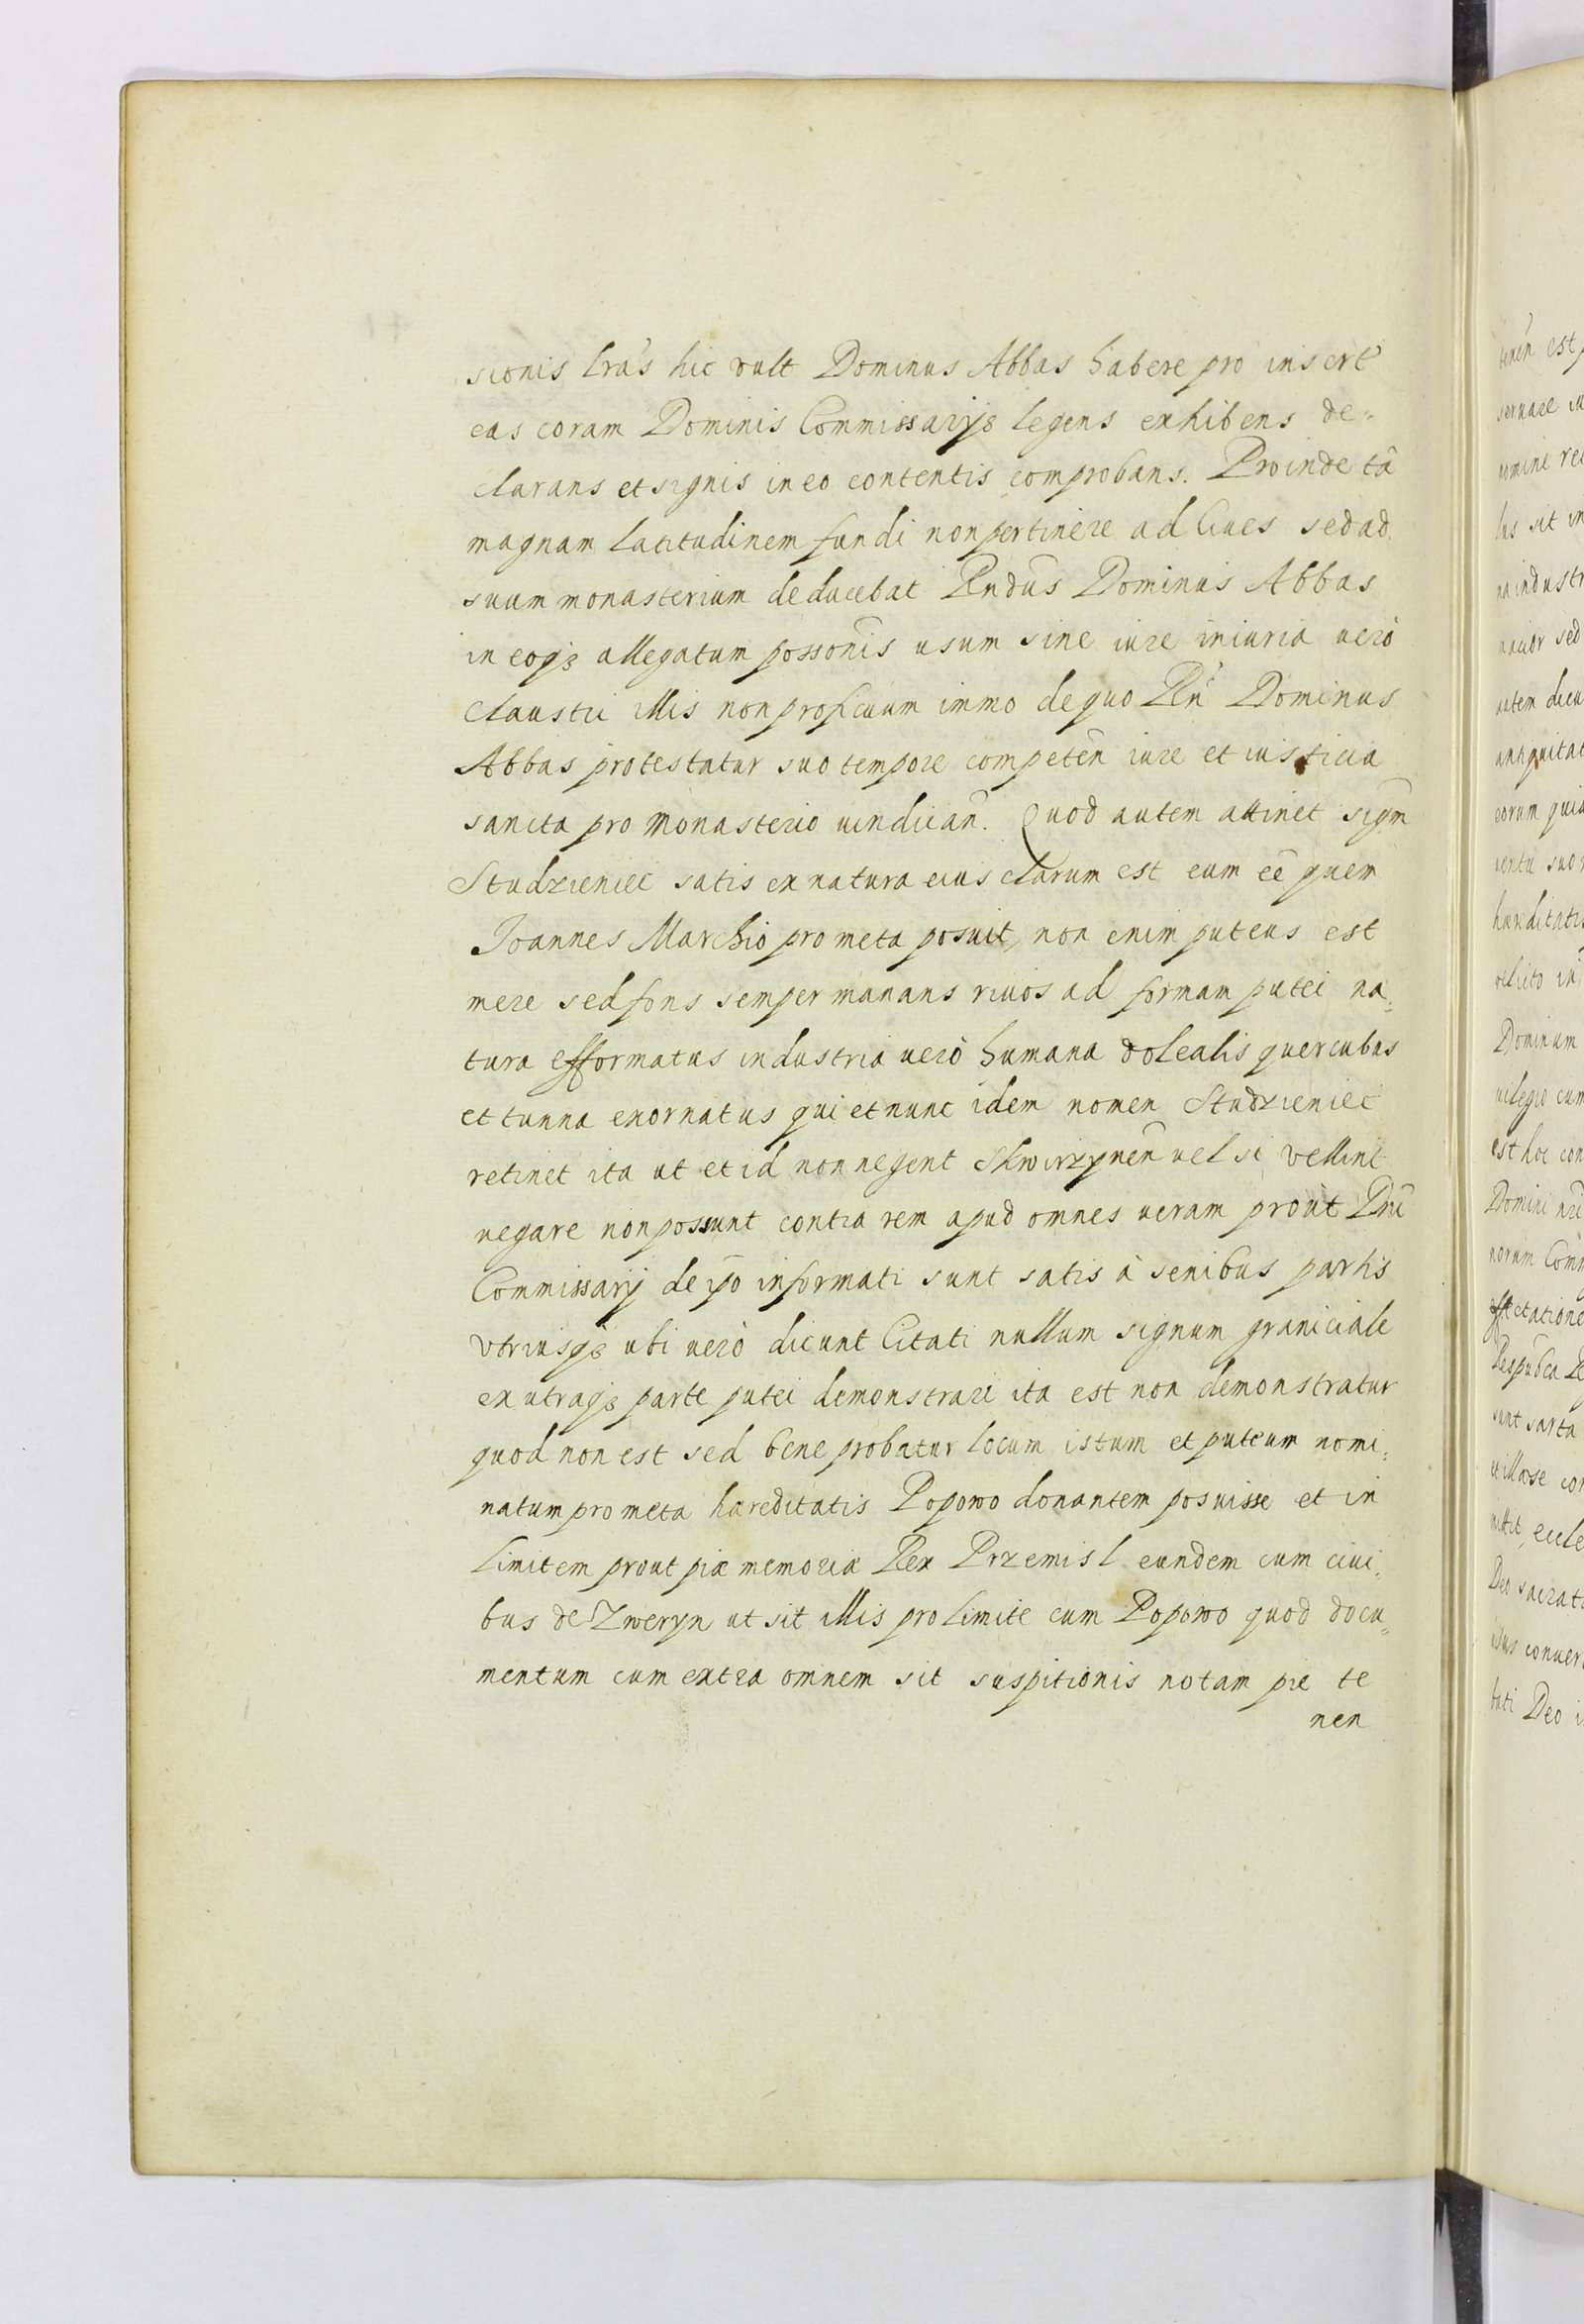 sionis lrãs hic vult Dominus Abbas habere pro insert
eas coram Dominis Commissarijs legens exhibens de=
clarans et signis in eo contentis comprobans. Proinde tã
magnam latitudinem fundi non pertinere ad Ciues sed ad
suum monasterium deducebat Rndũs Dominus Abbas
in eoq3 allegatum possõnis usum sine iure iniuria uerò
claustri illis non proficuum immo de quo Rñ Dominus
Abbas protestatur suo tempore competeñ iure et iusticia
sancita pro monasterio uindicañ. Quod autem attinet sigm̃
Studzieniec satis ex natura eius clarum est eum eẽ quem
Joannes Marchio pro meta posuit, non enim puteus est
mere sed fons semper manans riuos ad formam putei na=
tura efformatus industria uerò humana dolealis quercubus
et tunna exornatus qui et nunc idem nomen Studzieniec
retinet ita ut et id non negent Skwirzyneñ uel si vellint
negare non possunt contra rem apud omnes ueram prout Dni
Commissarij de ip̃o informati sunt satis à senibus partis
vtriusq3 ubi uerò dicunt Citati nullum signum graniciale
ex utraq3 parte putei demonstrari ita est non demonstratur
quod non est sed bene probatur locum istum et puteum nomi=
natum pro meta hæreditatis Popowo donantem posuisse et in
limitem prout piæ memoriæ Rex Przemisl eundem cum ciui=
bus de Zweryn ut sit illis pro limite cum Popowo quod docu=
mentum cum extra omnem sit suspitionis notam pre te
nen